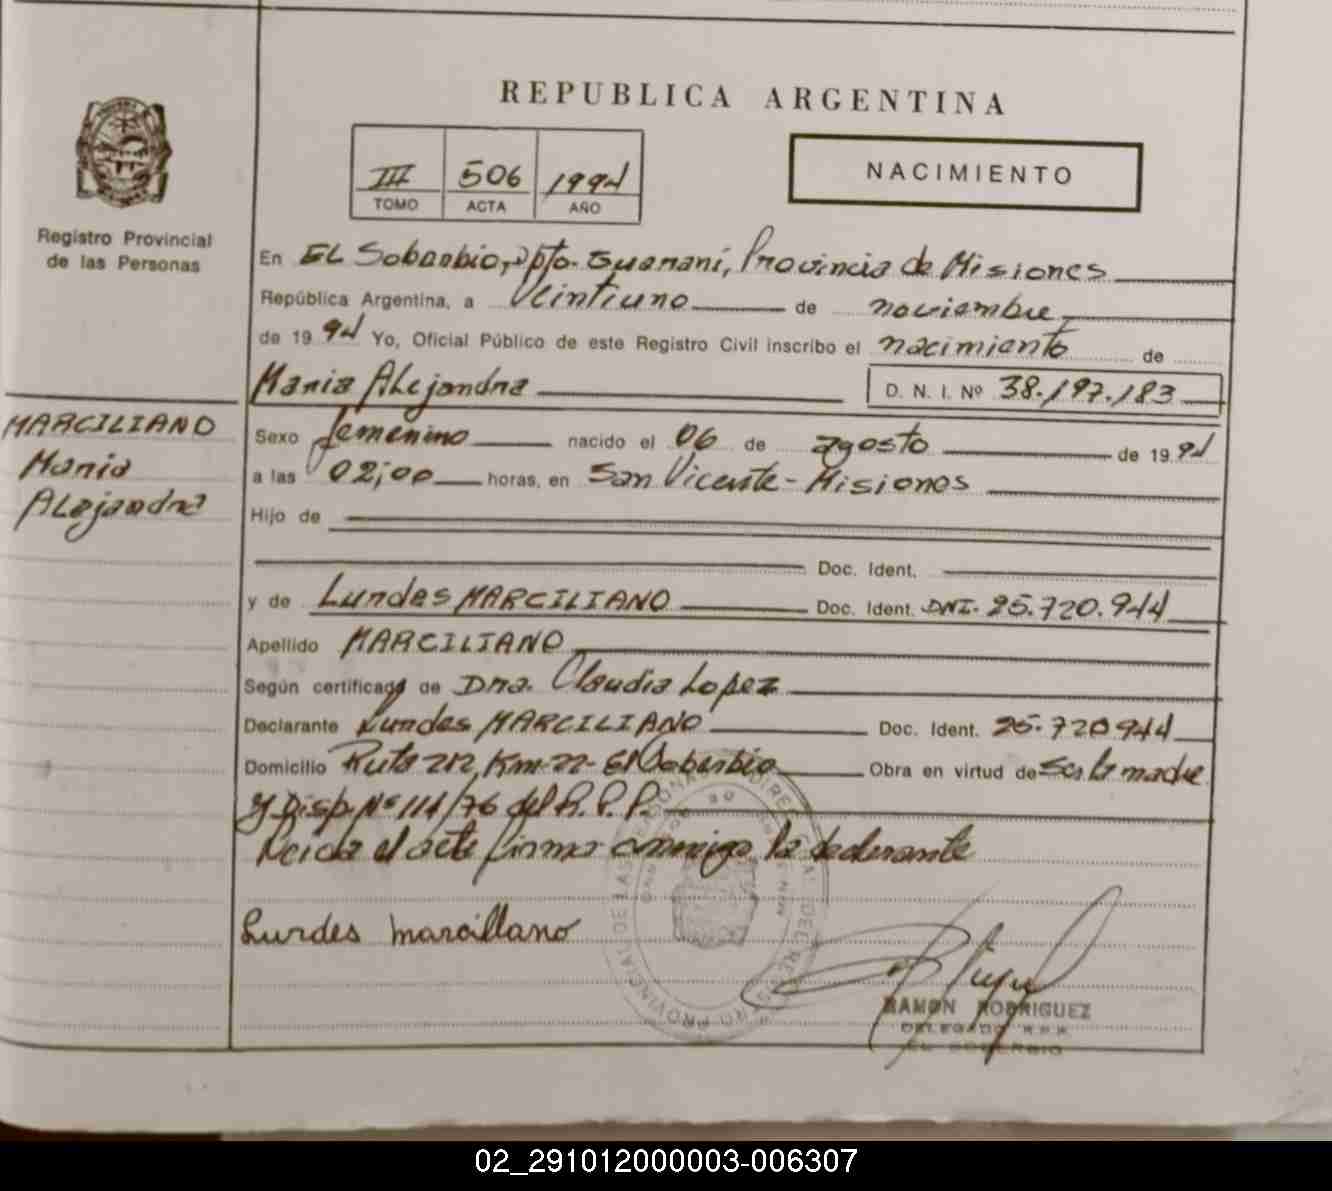 REPUBLICA ARGENTINA
III 506 1994
TOMO ACTA AÑO
NACIMIENTO
Registro Provincial
de las Personas
En EL Soberbio, Dpto. Guaraní, Provincia de Misiones
República Argentina, a Veintiuno de noviembre
de 1994 Yo, Oficial Público de este Registro Civil inscribo el nacimiento de
Maria Alejandra D. N. I. Nº 38.197.183
MARCILIANO
Maria
Alejandra
Sexo femenino nacido el 06 de agosto de 1994
a las 02,00 horas, en San Vicente - Misiones
Hijo de
Doc. Ident.
y de Lurdes MARCILIANO Doc. Ident. DNI. 25.720.944
Apellido MARCILIANO
Según certificado de Dra. Claudia Lopez
Declarante Lurdes MARCILIANO Doc. Ident. 25.720944
Domicilio Ruta 212, Km-22- El Soberbio Obra en virtud de Ser la madre
y Disp. Nº 114/76 del R.P.P.
Leida el acta firma conmigo la declarante
Lurdes marcillano
RAMON RODRIGUEZ
DELEGADO R.P.P.
EL SOBERBIO
02_291012000003-006307